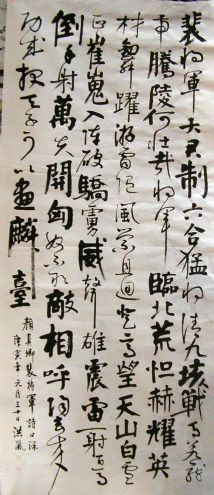 裴将軍大君制六合猛将清九垓戰馬若龍
虎騰陵何壮哉将軍臨北荒恒赫耀英
材劍舞躍游電随風縈且迴登高望天山白雲
正崔嵬入陣破驕虜威聲雄震雷一射百馬
倒再射萬夫開匈奴不敢敵相呼歸去来
功成報天子可以畫麟臺
顔真卿裴将軍詩
庚寅年元月三十日洪風